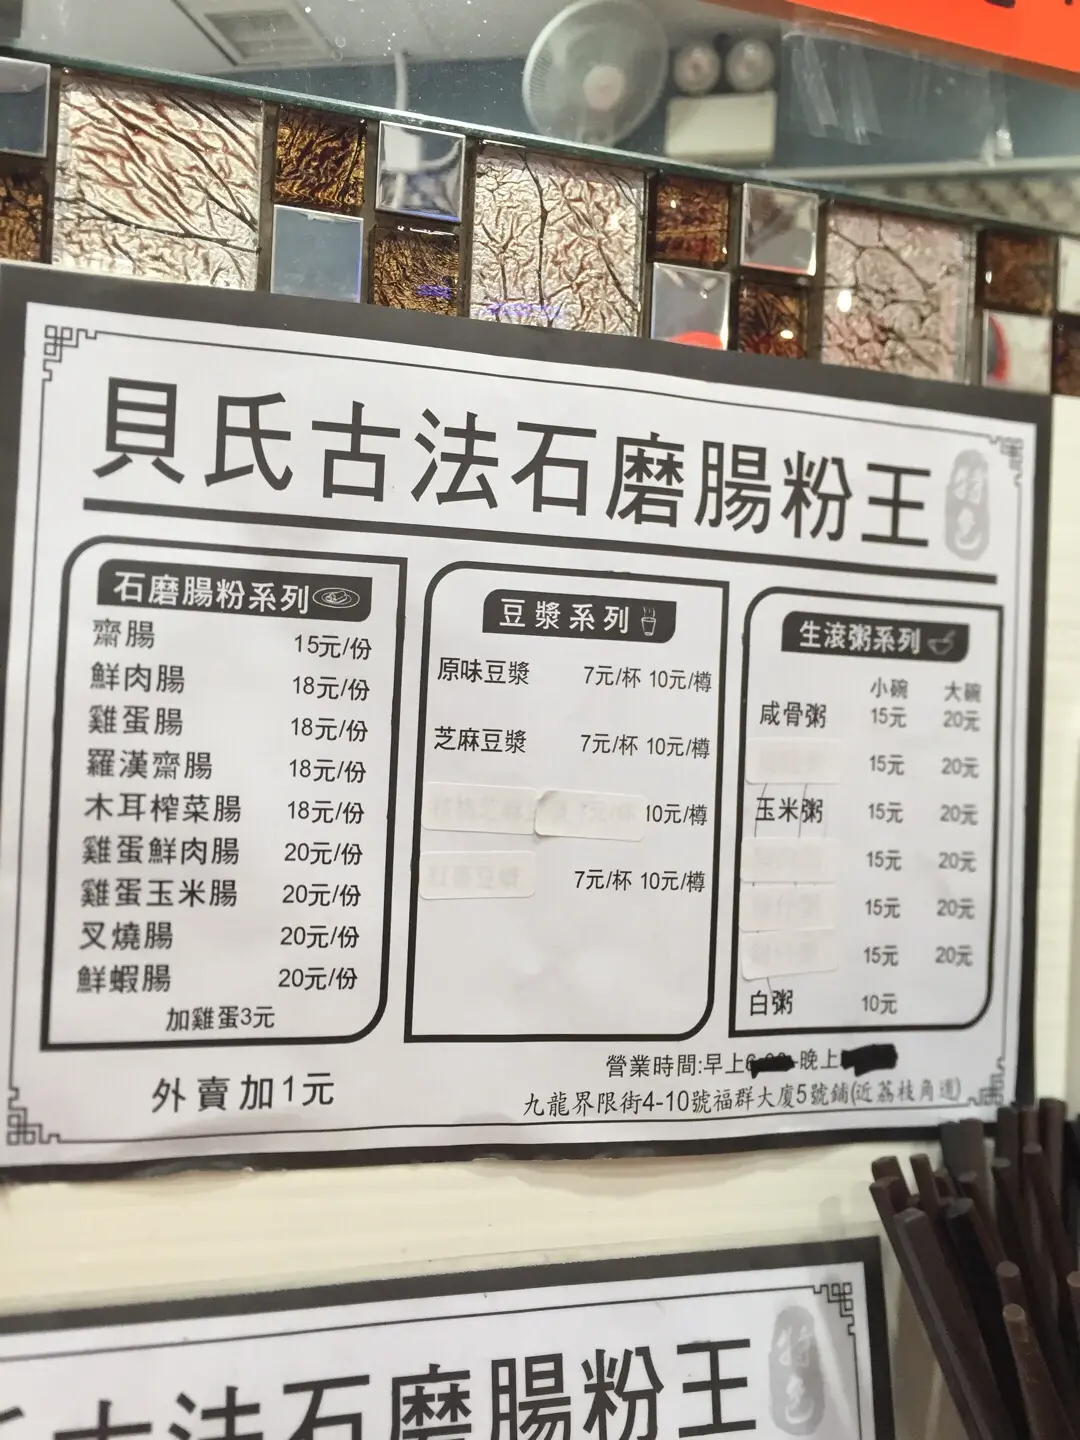 貝氏古法石磨腸粉王 特色
石磨腸粉系列
齋腸 15元/份
鮮肉腸 18元/份
雞蛋腸 18元/份
羅漢齋腸 18元/份
木耳榨菜腸 18元/份
雞蛋鮮肉腸 20元/份
雞蛋玉米腸 20元/份
叉燒腸 20元/份
鮮蝦腸 20元/份
加雞蛋3元
豆漿系列
原味豆漿 7元/杯 10元/樽
芝麻豆漿 7元/杯 10元/樽
10元/樽
7元/杯 10元/樽
生滾粥系列
小碗 大碗
咸骨粥 15元 20元
15元 20元
玉米粥 15元 20元
15元 20元
15元 20元
15元 20元
白粥 10元
外賣加1元
營業時間:早上 -晚上
九龍界限街4-10號福群大廈5號鋪(近荔枝角道)
古法石磨腸粉王 特色